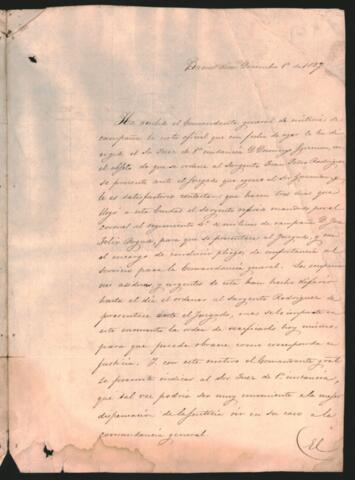 Diciembre 1º de 1837
Ha recibido el Comandante general de milicias de
campaña la nota oficial que con fecha de ayer le ha di-
rigido el Sr Juez de 1ª instancia D. Domingo
el objeto de que se ordene al Sargento Juan Rodriguez
se presente ante el Juzgado que
le es satisfactorio contestar que hacen tres dias que
llegó a esta Ciudad el Sargento mandado por el
coronel del regimiento de milicias de campaña D. Juan
Felix para que se presentara al Juzgado, y con
el encargo de conducir pliegos de importancia al
servicio para la Comandancia general. Las
asiduas y urgentes de esta han hecho diferir
hasta el dia el ordenar al Sargento Rodriguez de
presentarse ante el Juzgado, mas se le imparte en
este momento la orden de verificarlo hoy mismo,
para que pueda obrarse como corresponda en
justicia. Y con este motivo el Comandante gral
se permite indicar al Sr Juez de 1ª instancia,
que tal vez podria ser muy conveniente a la mejor
dispensacion de la justicia oir en su caso a la
comandancia general.
El